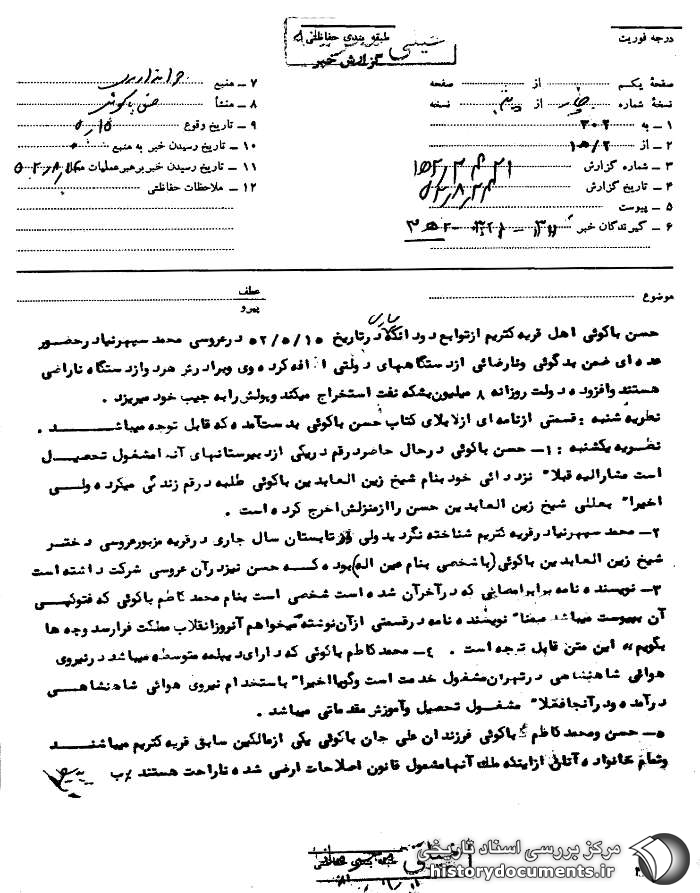 درجه فوریت
طبقه بندی حفاظتی
گزارش خبر
صفحهٔ یکم از صفحه
نسخهٔ شماره از نسخه
۱ – به ۳۰۲
۲ – از ۱ه/۲
۳ – شماره گزارش
۴ – تاریخ گزارش
۵ – پیوست
۶ – گیرندگان خبر
۷ – منبع
۸ – منشأ حسن باکوئی
۹ – تاریخ وقوع
۱۰ – تاریخ رسیدن خبر به منبع
۱۱ – تاریخ رسیدن خبر برهبر عملیات
۱۲ – ملاحظات حفاظتی
موضوع
عطف
پیرو
حسن باکوئی اهل قریه کتریم از توابع دودانگه ساری در تاریخ ۵۲/۵/۱۵ در عروسی محمد سپهرنیا در حضور
عده ای ضمن بدگوئی و نارضائی از دستگاههای دولتی اضافه کرده وی و برادرش هر دو از دستگاه ناراضی
هستند و افزوده دولت روزانه ۸ میلیون بشکه نفت استخراج میکند و پولش را به جیب خود میریزد .
نظریه شنبه : قسمتی از نامه ای از لابلای کتاب حسن باکوئی بدست آمده که قابل توجه میباشد .
نظریه یکشنبه : ۱ – حسن باکوئی در حال حاضر در قم در یکی از دبیرستانهای آنجا مشغول تحصیل
است مشارالیه قبلاً نزد دائی خود بنام شیخ زین العابدین باکوئی طلبه در قم زندگی میکرده ولی
اخیراً بعللی شیخ زین العابدین حسن را از منزلش اخرج کرده است .
۲ – محمد سپهرنیا در قریه کتریم شناخته نگردید ولی در تابستان سال جاری در قریه مزبور عروسی دختر
شیخ زین العابدین باکوئی (با شخصی بنام عین اله) بوده که حسن نیز در آن عروسی شرکت داشته است
۳ – نویسنده نامه برابر امضایی که در آخر آن شده است شخصی است بنام محمد کاظم باکوئی که فتوکپی
آن بپیوست میباشد ضمناً نویسنده نامه در قسمتی از آن نوشته میخواهم آنروز انقلاب مملکت فرا رسد وجه ها
بگویم به این متن قابل توجه است . ۴ – محمد کاظم باکوئی که دارای دیپلمه متوسطه میباشد در نیروی
هوائی شاهنشاهی در تهران مشغول خدمت است و گویا اخیراً باستخدام نیروی هوائی شاهنشاهی
درآمده و در آنجا فعلاً مشغول تحصیل و آموزش مقدماتی میباشد .
۵ – حسن و محمد کاظم باکوئی فرزندان علی جان باکوئی یکی از مالکین سابق قریه کتریم میباشند
و تمام خانواده آنان از اینکه ملک آنها مشمول قانون اصلاحات ارضی شده ناراحت هستند
مرکز بررسی اسناد تاریخی
historydocuments.ir